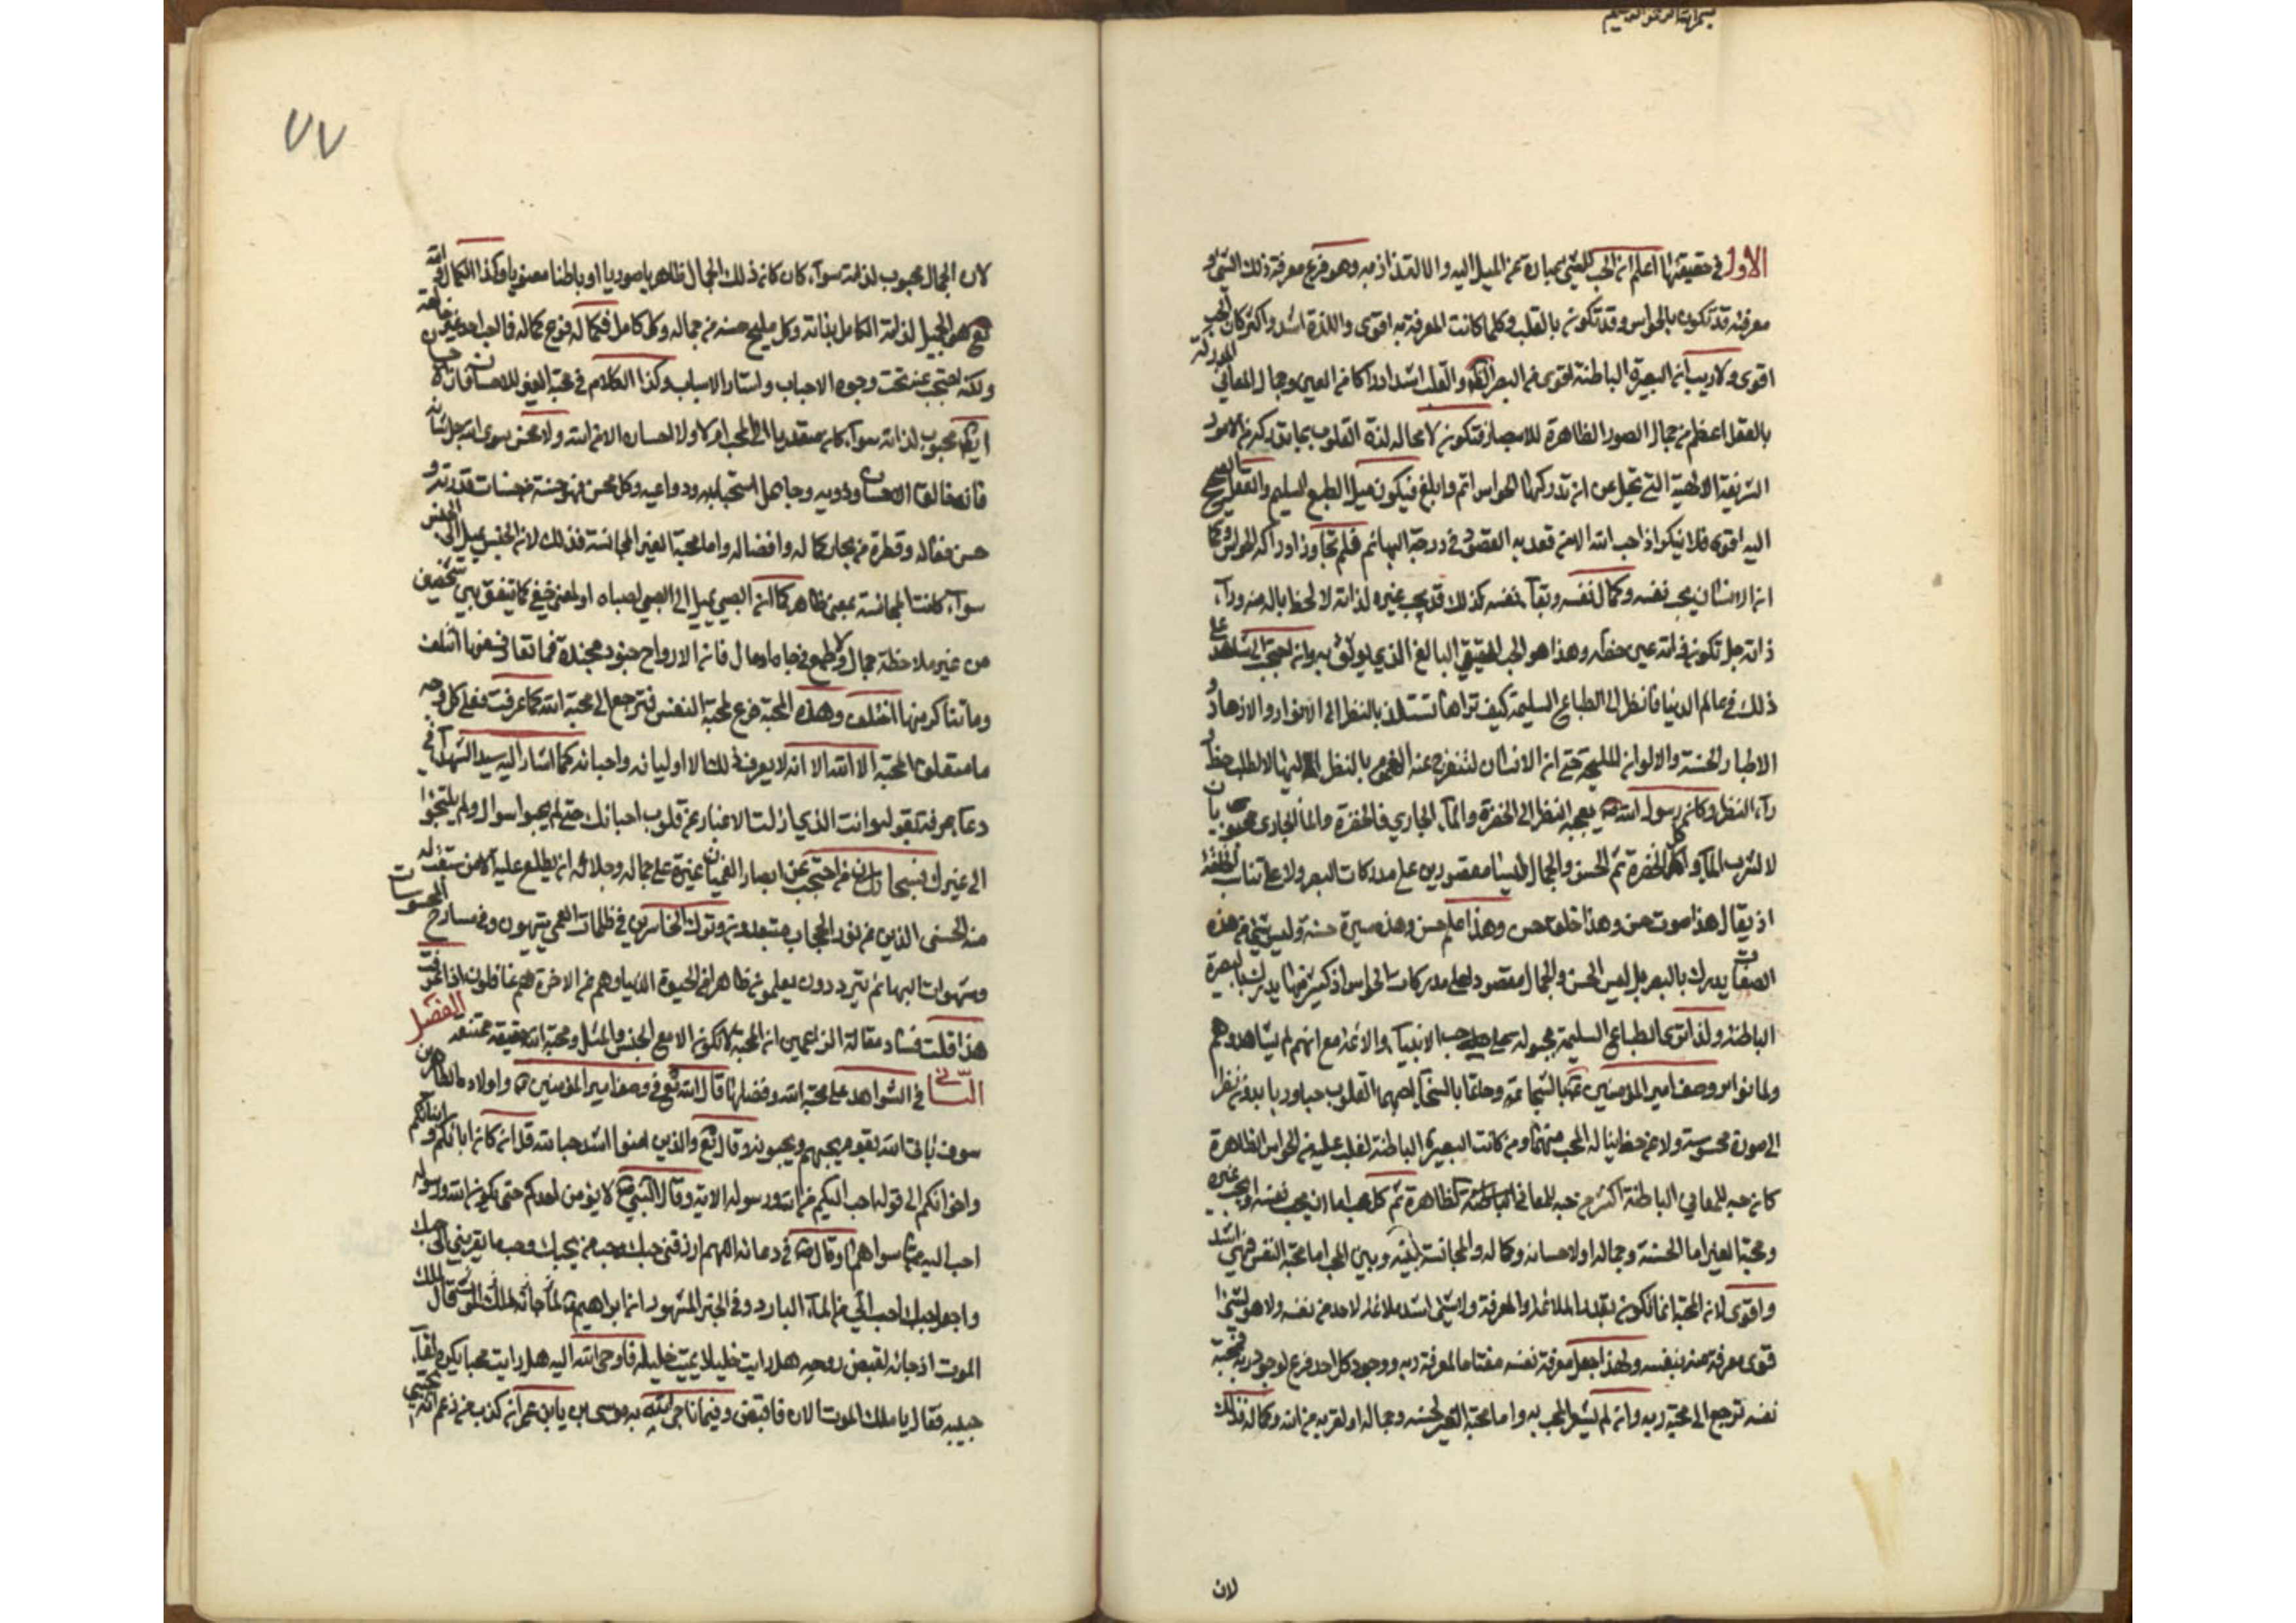 بسم الله الرحمن الرحيم
الاول في حقيقتها اعلم ان الحب للشئ عبارة عن الميل اليه والالتذاذ به وهو فرع معرفة ذلك الشئ و
معرفته قد تكون بالحواس وقد تكون بالقلب وكلما كانت المعرفة به اقوى واللذة اشد واكثر كان الحب
اقوى ولا ريب ان البصيرة الباطنة اقوى من البصر الظاهر والقلب اشد ادراكا من العين وجمال المعاني المدركة
بالعقل اعظم من جمال الصور الظاهرة للابصار فتكون لا محاله لذة القلوب بما يدركه من الامور
الشريفة الالهية التي تجل عن ان تدركها الحواس اتم وابلغ فيكون ميل الطبع السليم والعقل الصحيح
اليه اقوى فلا ينكر اذا حب الله الا من قعد به القصور في درجة البهائم فلم يتجاوز ادراكه الحواس وكما
ان الانسان يحب نفسه وكمال نفسه وبقآء نفسه كذلك قد يحب غيره لذاته لا لحظ يناله منه ورآء
ذاته بل تكون ذاته عين حظه وهذا هو الحب الحقيقي البالغ الذي يوثق به وان احتجت الى شاهد على
ذلك في عالم الدنيا فانظر الى الطباع السليمة كيف تراها تستلذ بالنظر الى الانوار والازهار و
الاطيار الحسنة والالوان المليحة حتى ان الانسان لتنفرج عنه الغموم بالنظر اليها لا لطلب حظ و
رآء النظر وكان رسول الله ص يعجبه النظر الى الخضرة والمآء الجاري فالخضرة والماء الجاري محبوبان
لا لشرب المآء واكل الخضرة ثم الحسن والجمال ليسا مقصورين على مدركات البصر ولا على تناسب الخلقة
اذ يقال هذا صوت حسن وهذا خلق حسن وهذا علم حسن وهذه سيرة حسنة وليس شئ من هذه
الصفات يدرك بالبصر بل ليس الحسن والجمال مقصورا على مدركات الحواس اذ كثير منها يدرك بالبصيرة
الباطنة ولذا ترى الطباع السليمة مجبولة على حب الانبيآء والائمة مع انهم لم يشاهدوهم
ولما تواتر وصف امير المؤمنين ع بالشجاعة وحاتم بالسخآء احبهما القلوب حبا ضروريا بدون نظر
الى صورة محسوسة ولا عن حظ يناله المحب منهما ومن كانت البصيرة الباطنة اغلب عليه من الحواس الظاهرة
كان حبه للمعاني الباطنة اكثر من حبه للمعاني الظاهرة ثم كل محب اما ان يحب نفسه او يحب غيره
ومحبة الغير اما لحسنه وجماله او لاحسانه وكماله والمجانسة بينه وبين المحب اما محبة النفس فهي اشد
واقوى لان المحبة انما تكون بقدر الملائمة والمعرفة ولا شئ اشد ملائمة لاحد من نفسه ولا هو لشئ
اقوى معرفة منه بنفسه ولهذا جعل معرفة نفسه مفتاحا لمعرفة ربه ووجود كل احد فرع لوجود ربه فمحبة
نفسه ترجع الى محبة ربه وان لم يشعر المحب به واما محبة الغير لحسنه وجماله او لقربه من الله وكماله فذلك
لان
٧٧
لان الجمال محبوب لذاته سوآء كان ذلك الجمال ظاهريا صوريا او باطنا معنويا وكذا الكمال والله
تع هو الجميل لذاته الكامل بذاته وكل مليح حسنه من جماله وكل كامل فكماله فرع كماله فما احب احد غير خالقه
ولكنه احتجب عنه تحت وجوه الاحباب واستار الاسباب وكذا الكلام في محبة الغير للاحسان فان الاحسان
ايضا محبوب لذاته سوآء كان متعديا الى المحب ام لا ولا احسان الا من الله ولا محسن سوى الله جل شانه
فانه خالق الاحسان وذويه وجاعل اسبابه ودواعيه وكل محسن فهو حسنة من حسنات قدرته و
حسن فعاله وقطرة من بحار كماله وافضاله واما محبة الغير للمجانسة فذلك لان الجنس يميل الى الجنس
سوآء كانت المجانسة بمعنى ظاهر كما ان الصبي يميل الى الصبي لصباه او لمعنى خفي كما يتفق بين شخصين
من غير ملاحظة جمال ولا طمع في جاه او مال فان الارواح جنود مجندة فما تعارف منها ائتلف
وما تناكر منها اختلف وهذه المحبة فرع لمحبة النفس فترجع الى محبة الله كما عرفت فعلى كل وجه
ما متعلق المحبة الا الله الا انه لا يعرف ذلك الا اوليائه واحبائه كما اشار اليه سيد الشهدآء في
دعآء عرفة بقوله وانت الذي ازلت الاغيار عن قلوب احبائك حتى لم يحبوا سواك ولم يلتجئوا
الى غيرك فسبحان من احتجب عن ابصار العميان غيرة على جماله وجلاله ان يطلع عليه الا من سبقت له
منه الحسنى الذين هم من نور الحجاب مبعدون وترك الخاسرين في ظلمات العمى يتيهون وفي مسارح المحسوسات
وشهوات البهائم يترددون يعلمون ظاهرا من الحيوة الدنيا وهم عن الاخرة هم غافلون اذا عرفت
هذا قلت فساد مقالة الزاعمين ان المحبة لا تكون الا مع الجنس والمثل ومحبة الله حقيقة ممتنعة الفصل
الثاني في الشواهد على محبة الله وفضلها قال الله تع في وصف امير المؤمنين ع واولاده الطاهرين
سوف ياتي الله بقوم يحبهم ويحبونه وقال تع والذين امنوا اشد حبا لله قل ان كان ابائكم وابنائكم
واخوانكم الى قوله احب اليكم من الله ورسوله الاية وقال النبي ص لا يؤمن احدكم حتى يكون الله ورسوله
احب اليه مما سواهما وقال ص في دعائه اللهم ارزقني حبك وحب من يحبك وحب ما يقربني الى حبك
واجعل حبك احب الي من المآء البارد وفي الخبر المشهور ان ابراهيم ع قال لملك
الموت اذ جائه لقبض روحه هل رايت خليلا يميت خليله فاوحى الله اليه هل رايت محبا يكره لقآء
حبيبه فقال يا ملك الموت الان فاقبض وفيما ناجى الله به موسى يا بن عمران كذب من زعم انه يحبني